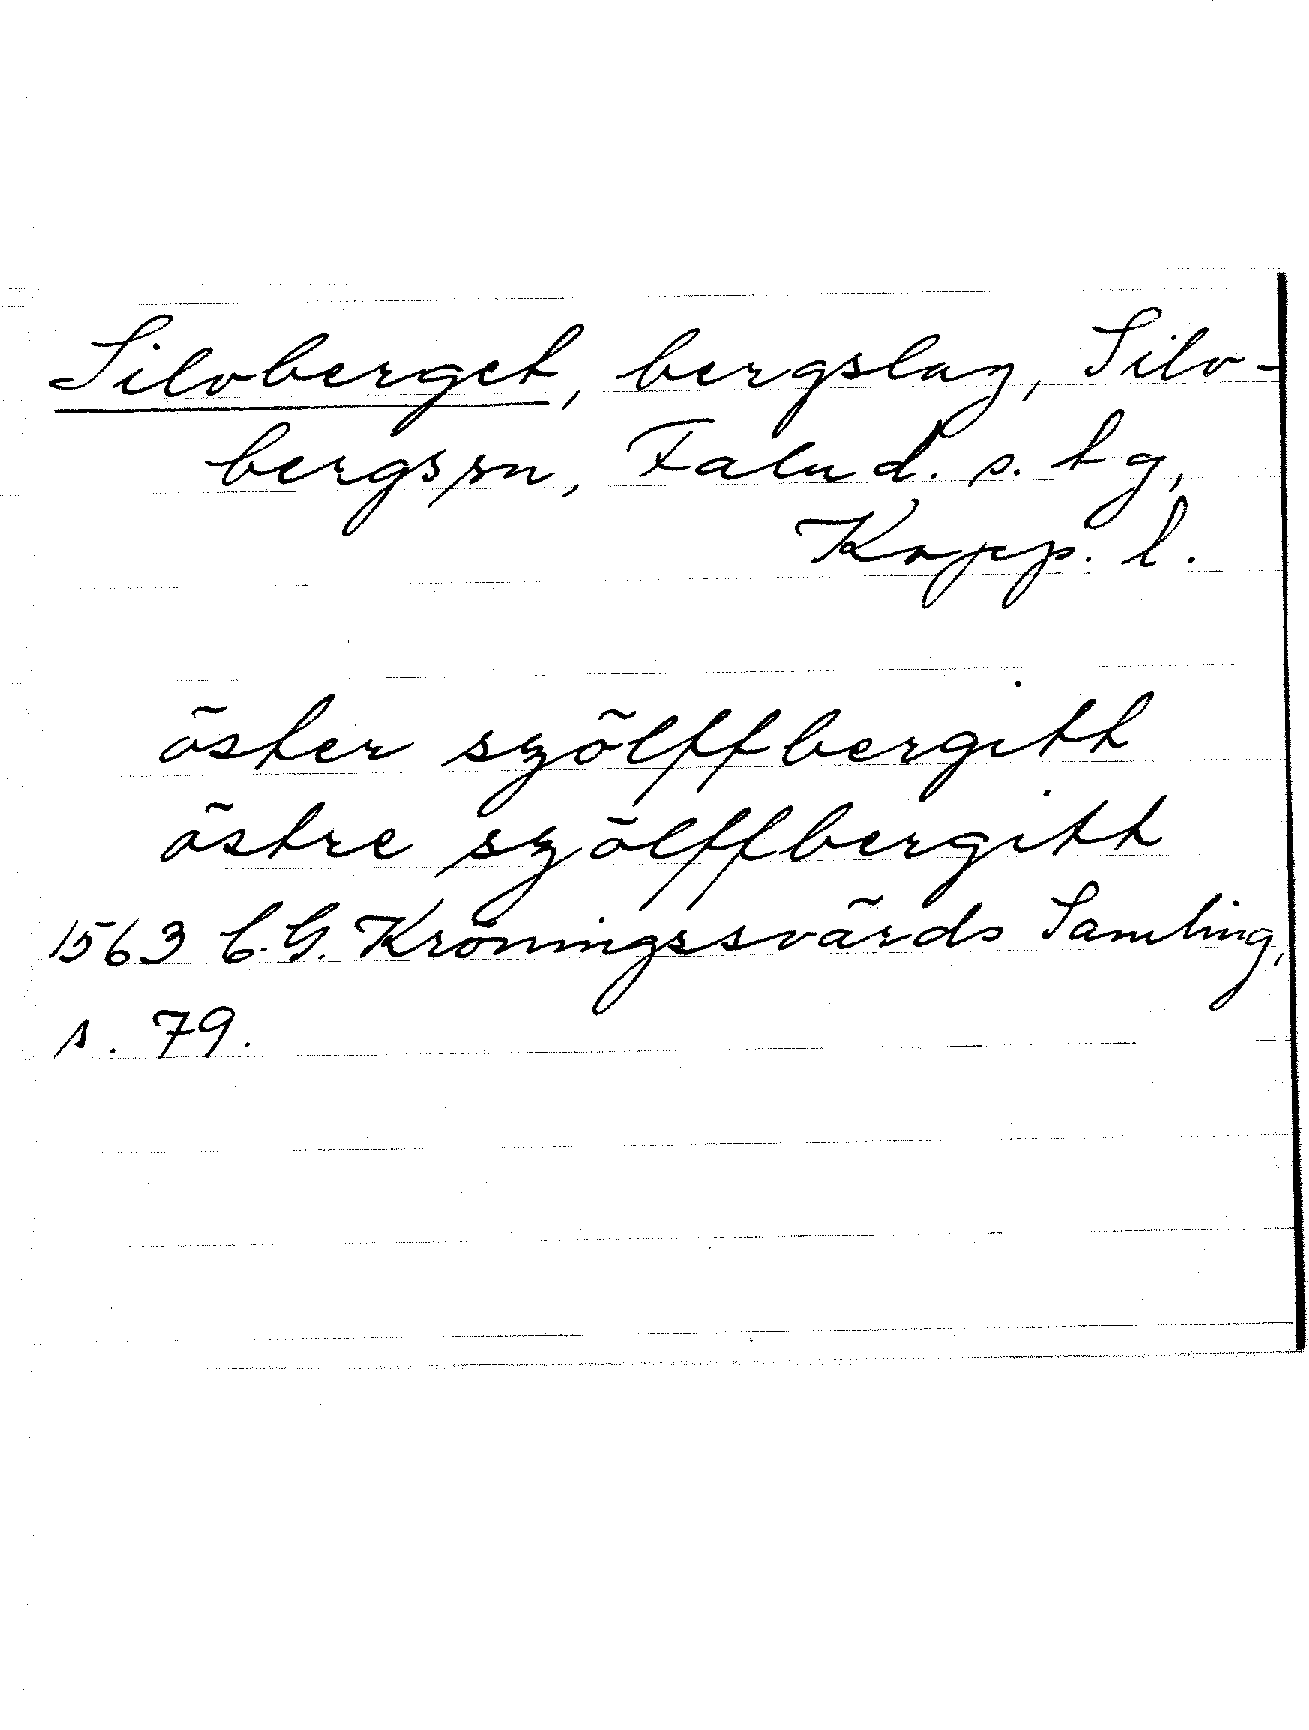 Silvberget, bergslag, Silv-
bergs sn, Falu d. s. tg,
Kopp. l.
öster szölffbergitt
östre szölffbergitt
1563 C. G. Kröningssvärds Samling,
s. 79.